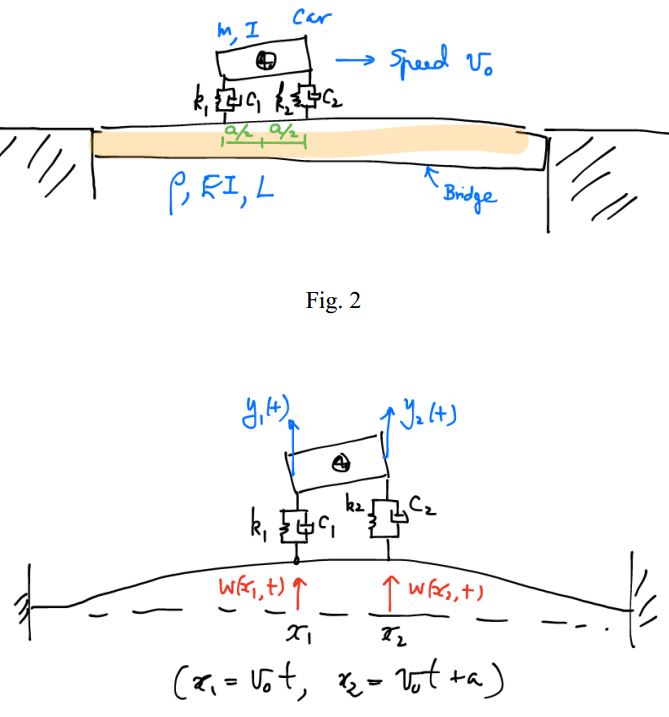 m, I Car
→ Speed v₀
k₁ C₁ k₂ C₂
a/2 a/2
ρ, EI, L
Bridge
Fig. 2
y₁(t) y₂(t)
k₁ C₁ k₂ C₂
w(x₁,t) w(x₂,t)
x₁ x₂
(x₁ = v₀t, x₂ = v₀t + a)